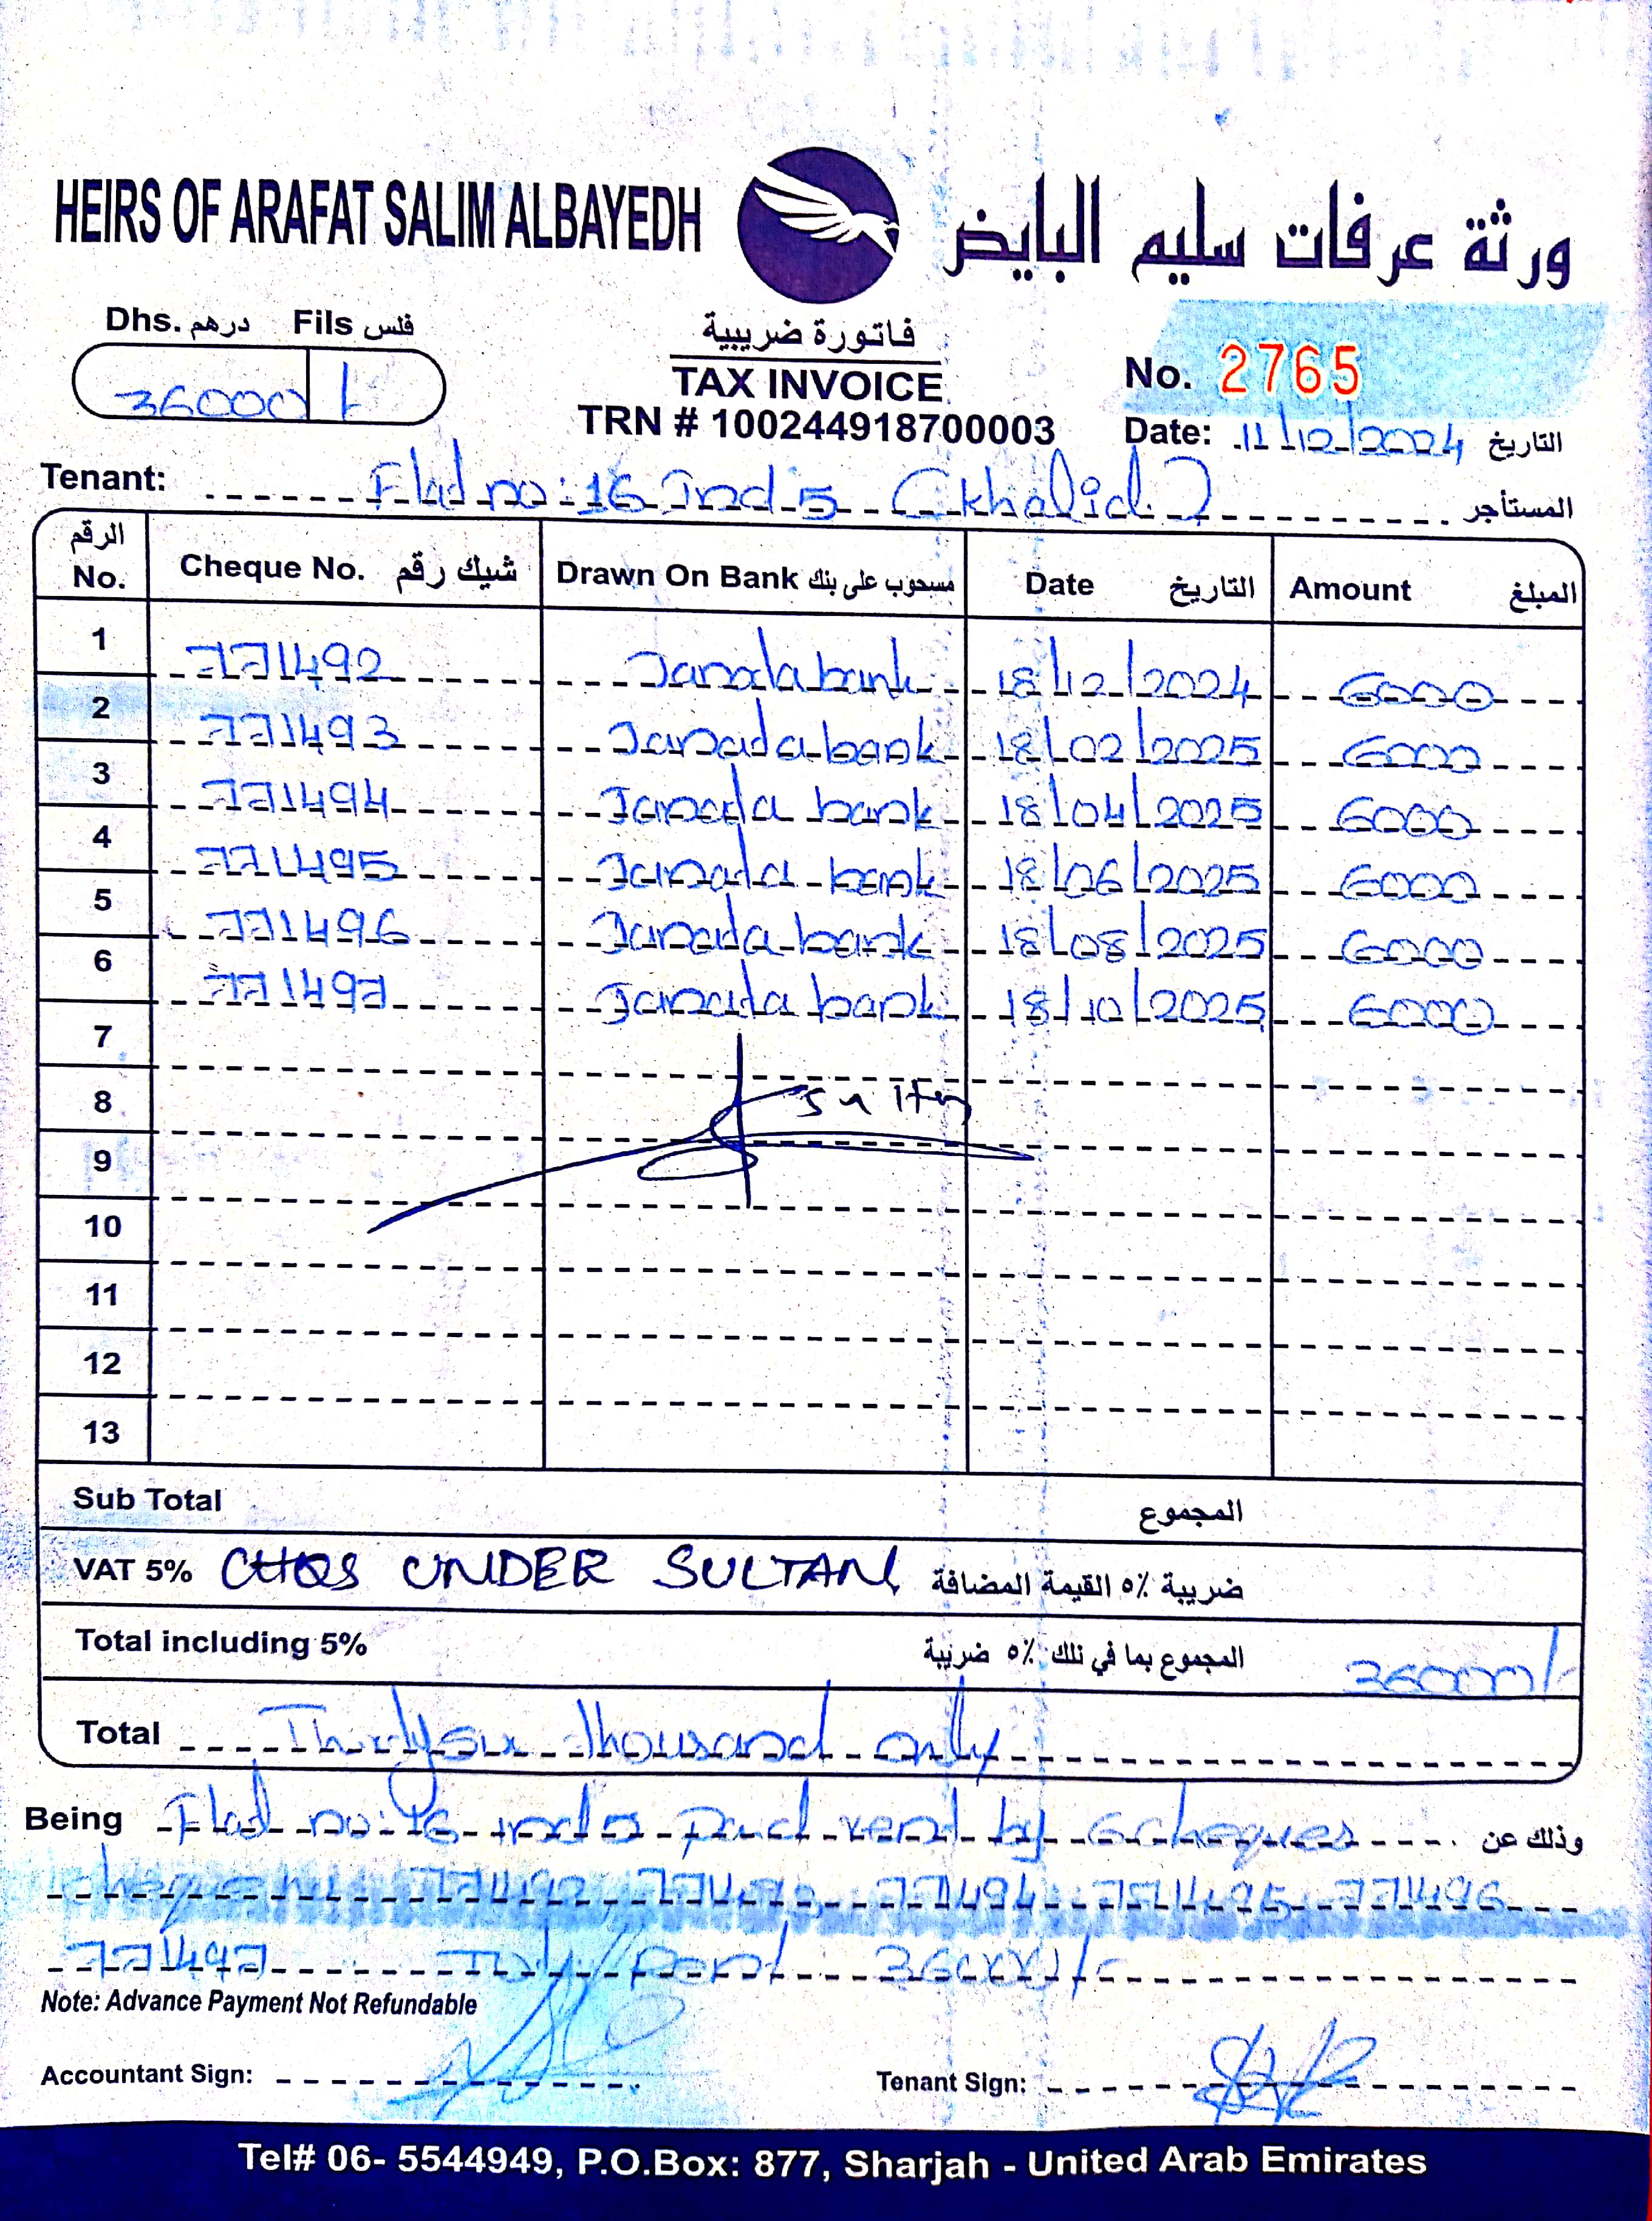 HEIRS OF ARAFAT SALIM ALBAYEDH ورثة عرفات سليم البايض
Dhs. درهم Fils فلس
36000 /-
فاتورة ضريبية
TAX INVOICE
TRN # 100244918700003
No. 2765
Date: 11/12/2024 التاريخ
Tenant: Flat no: 16 Ind 5 (Khalid) المستأجر
الرقم No. Cheque No. شيك رقم Drawn On Bank مسحوب على بنك Date التاريخ Amount المبلغ
1 771492 Janada bank 18/12/2024 6000
2 771493 Janada bank 18/02/2025 6000
3 771494 Janada bank 18/04/2025 6000
4 771495 Janada bank 18/06/2025 6000
5 771496 Janada bank 18/08/2025 6000
6 771497 Janada bank 18/10/2025 6000
7
8
9
10
11
12
13
Sub Total المجموع
VAT 5% CHQS UNDER SULTAN ضريبة ٥٪ القيمة المضافة
Total including 5% المجموع بما في ذلك ٥٪ ضريبة 36000/-
Total Thirty six thousand only
Being Flat no: 16 ind 5 paid rent by 6 cheques وذلك عن
cheque no 771492 771493 771494 771495 771496
771497 36000/-
Note: Advance Payment Not Refundable
Accountant Sign: Tenant Sign:
Tel# 06- 5544949, P.O.Box: 877, Sharjah - United Arab Emirates